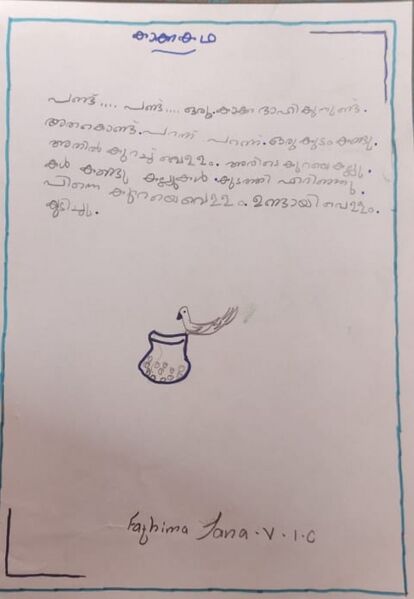 കാക്കകഥ
പണ്ട്.... പണ്ട്.... ഒരു. കാക്ക ദാഹിക്കുന്നുണ്ട്.
അതുകൊണ്ട്. പറന്ന് പറന്ന്. ഒരു കുടം കണ്ടു.
അതിൽ കുറച്ച് വെള്ളം. അവിടെ കുറയെ കല്ലു.
കൾ കണ്ടു കല്ലുകൾ. കുടത്തി എറിഞ്ഞു.
പിന്നെ കുറയെ വെള്ളം. ഉണ്ടായി വെള്ളം.
കുടിച്ചു.
Fathima Sana. V. 1. C